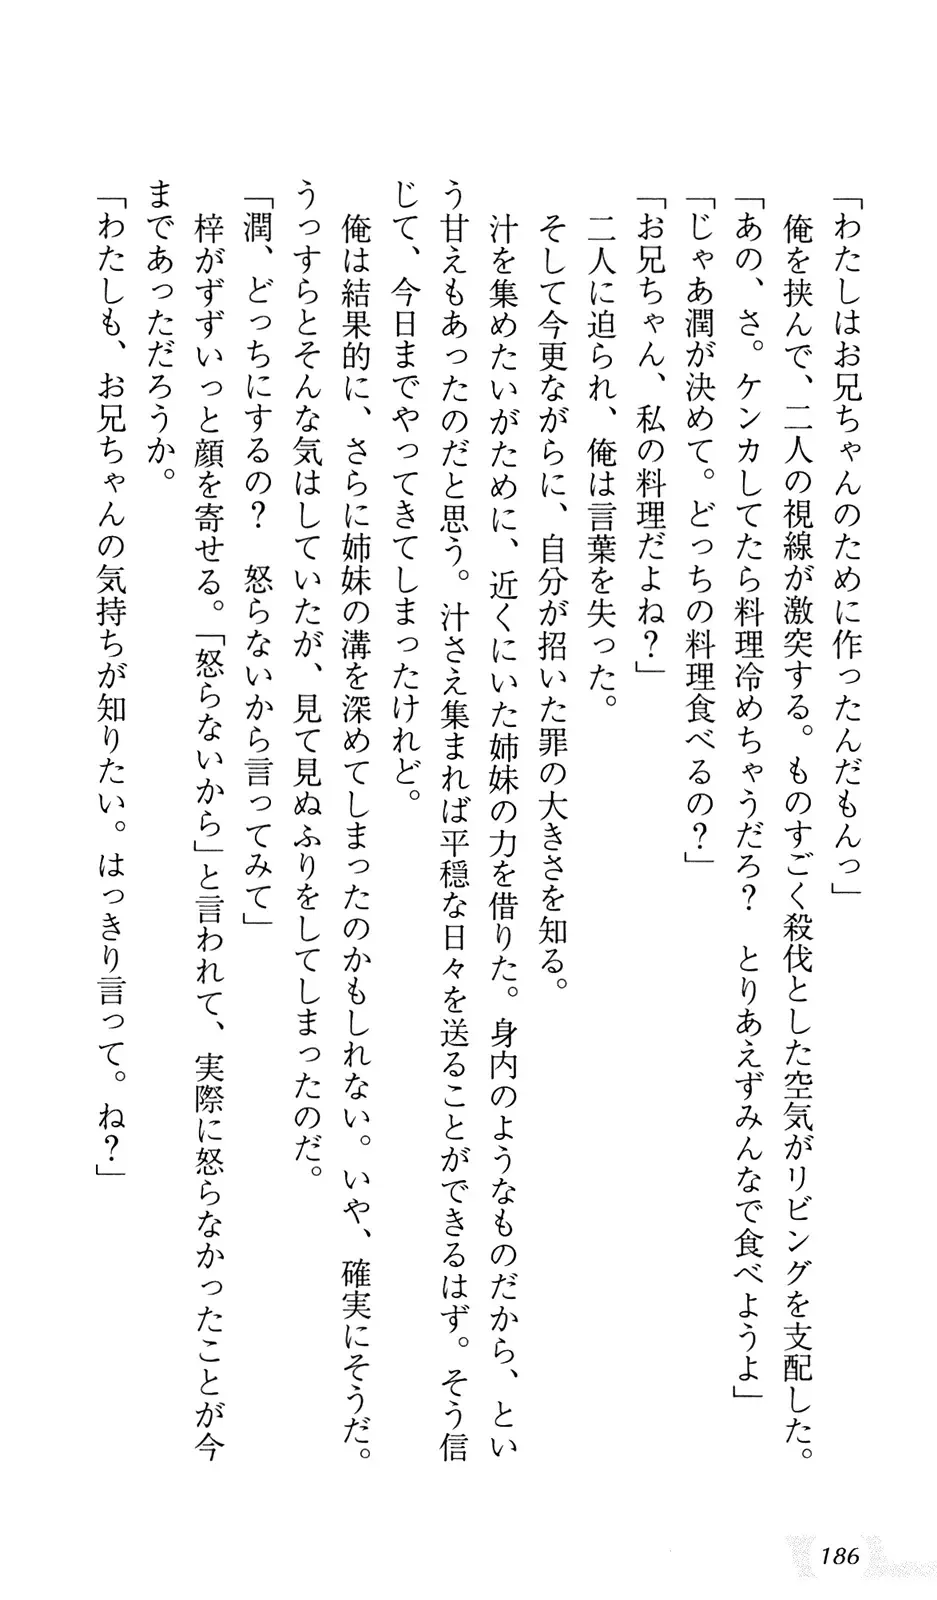 「わたしはお兄ちゃんのために作ったんだもんっ」
俺を挟んで、二人の視線が激突する。ものすごく殺伐とした空気がリビングを支配した。
「あの、さ。ケンカしてたら料理冷めちゃうだろ？　とりあえずみんなで食べようよ」
「じゃあ潤が決めて。どっちの料理食べるの？」
「お兄ちゃん、私の料理だよね？」
二人に迫られ、俺は言葉を失った。
そして今更ながらに、自分が招いた罪の大きさを知る。
汁を集めたいがために、近くにいた姉妹の力を借りた。身内のようなものだから、とい
う甘えもあったのだと思う。汁さえ集まれば平穏な日々を送ることができるはず。そう信
じて、今日までやってきてしまったけれど。
俺は結果的に、さらに姉妹の溝を深めてしまったのかもしれない。いや、確実にそうだ。
うっすらとそんな気はしていたが、見て見ぬふりをしてしまったのだ。
「潤、どっちにするの？　怒らないから言ってみて」
梓がずずいっと顔を寄せる。「怒らないから」と言われて、実際に怒らなかったことが今
まであっただろうか。
「わたしも、お兄ちゃんの気持ちが知りたい。はっきり言って。ね？」
186